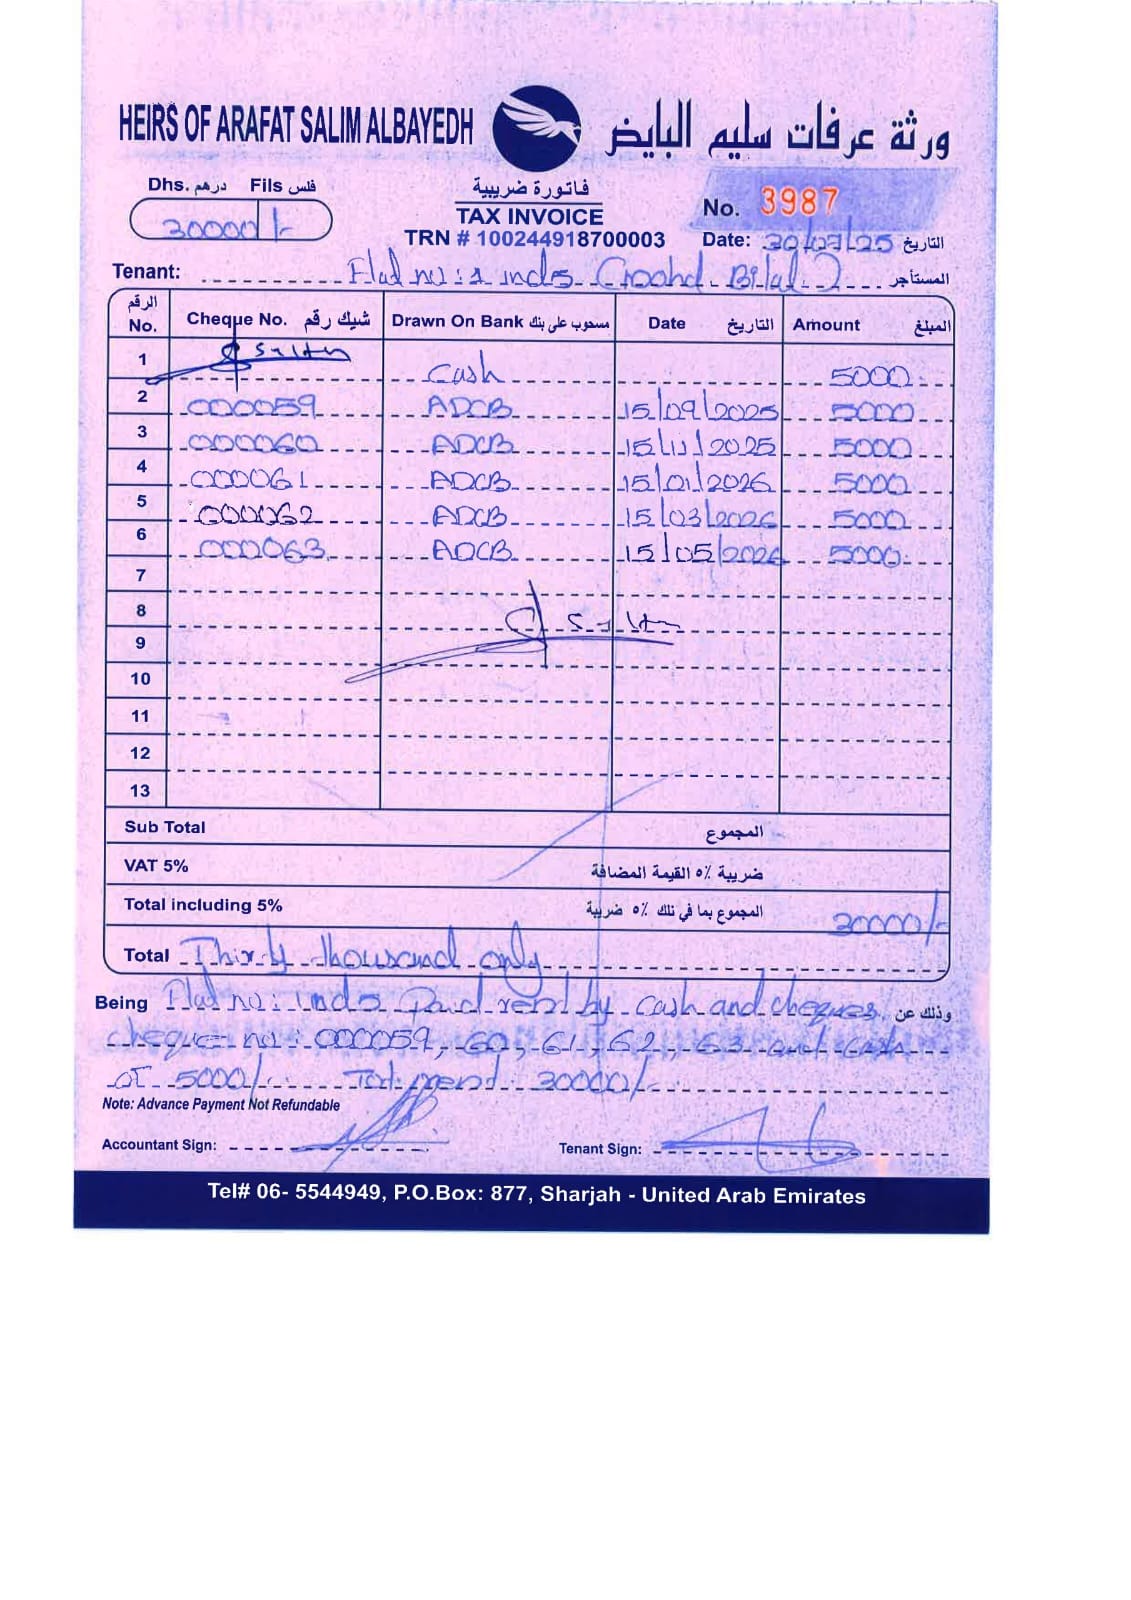 HEIRS OF ARAFAT SALIM ALBAYEDH ورثة عرفات سليم البايض
Dhs. درهم Fils فلس
30000 /-
فاتورة ضريبية
TAX INVOICE
TRN # 100244918700003
No. 3987
Date: 30/07/25 التاريخ
Tenant: Flat no: inds Bilal 2 المستأجر
الرقم No. Cheque No. شيك رقم Drawn On Bank مسحوب على بنك Date التاريخ Amount المبلغ
1 Cash 5000
2 000059 ADCB 15/09/2025 5000
3 000060 ADCB 15/11/2025 5000
4 000061 ADCB 15/01/2026 5000
5 000062 ADCB 15/03/2026 5000
6 000063 ADCB 15/05/2026 5000
7
8
9
10
11
12
13
Sub Total المجموع
VAT 5% ضريبة ٥٪ القيمة المضافة
Total including 5% المجموع بما في ذلك ٥٪ ضريبة 30000/-
Total Thirty thousand only
Being Flat no: inds Paid rent by Cash and cheques وذلك عن
cheque no: 000059, 60, 61, 62, 63 and cash
of 5000/- Total rent 30000/-
Note: Advance Payment Not Refundable
Accountant Sign: Tenant Sign:
Tel# 06- 5544949, P.O.Box: 877, Sharjah - United Arab Emirates